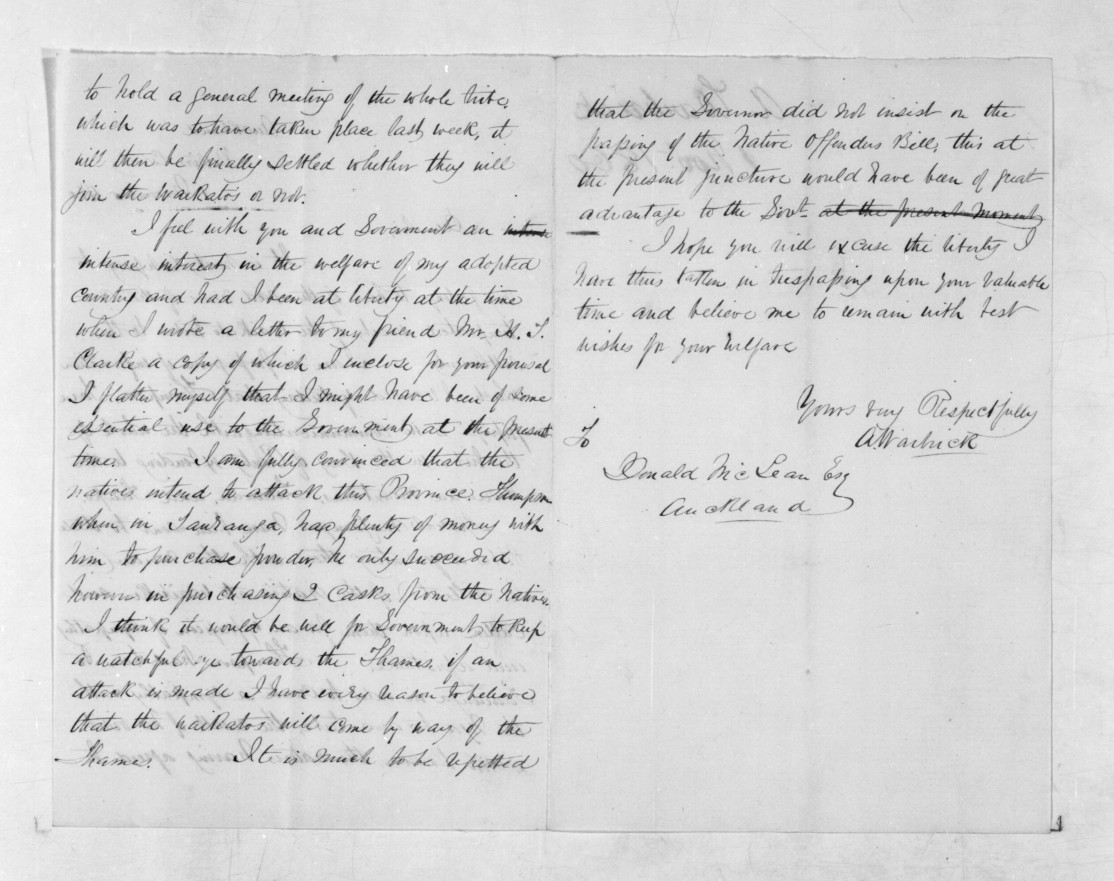 to hold a general meeting of the whole tribe,
which was to have taken place last week, it
will then be finally settled whether they will
join the Waikatos or not.
I feel with you and Goverment an intense
intense interest in the welfare of my adopted
country and had I been at liberty at the time
when I wrote a letter to my friend Mr. H. T.
Clarke a copy of which I inclose for your perusal
I flatter myself that I might have been of some
essential use to the Government at the present
times. I am fully convinced that the
natives intend to attack this Province. Thompson
when in Tauranga, had plenty of money with
him to purchase powder, he only succeeded
however in purchasing 2 Casks from the Natives.
I think it would be well for Government to keep
a watchful eye towards the Thames, if an
attack is made I have every reason to believe
that the waikatos will come by way of the
Thames. It is much to be regretted
that the Governor did not insist on the
passing of the Native Offenders Bill, this at
the present juncture would have been of great
advantage to the Govt. at the present moment
I hope you will excuse the liberty I
have thus taken in trespassing upon your valuable
time and believe me to remain with best
wishes for your welfare
Yours very Respectfully
A Warbrick
To
Donald McLean Esq
Auckland